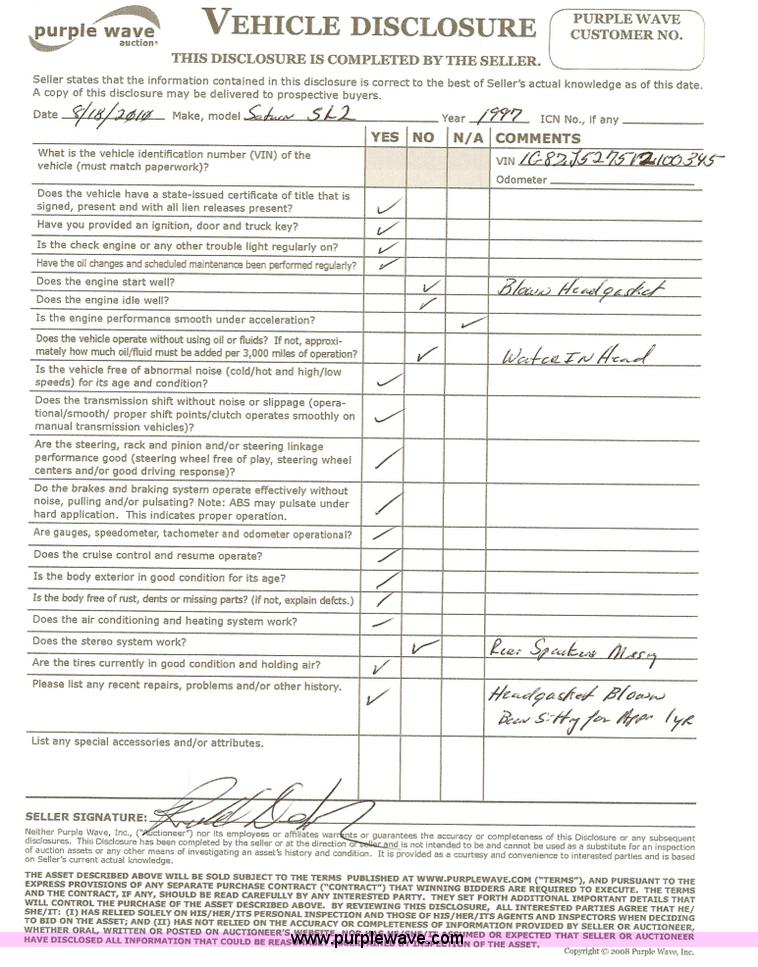 purple wave
auction®
VEHICLE DISCLOSURE
THIS DISCLOSURE IS COMPLETED BY THE SELLER.
PURPLE WAVE
CUSTOMER NO.
Seller states that the information contained in this disclosure is correct to the best of Seller's actual knowledge as of this date.
A copy of this disclosure may be delivered to prospective buyers.
Date 8/18/2010 Make, model Saturn SL2 Year 1997 ICN No., if any
YES NO N/A COMMENTS
What is the vehicle identification number (VIN) of the
vehicle (must match paperwork)?
VIN
Odometer
Does the vehicle have a state-issued certificate of title that is
signed, present and with all lien releases present?
Have you provided an ignition, door and truck key?
Is the check engine or any other trouble light regularly on?
Have the oil changes and scheduled maintenance been performed regularly?
Does the engine start well? Blown Headgasket
Does the engine idle well?
Is the engine performance smooth under acceleration?
Does the vehicle operate without using oil or fluids? If not, approxi-
mately how much oil/fluid must be added per 3,000 miles of operation? Water In Head
Is the vehicle free of abnormal noise (cold/hot and high/low
speeds) for its age and condition?
Does the transmission shift without noise or slippage (opera-
tional/smooth/ proper shift points/clutch operates smoothly on
manual transmission vehicles)?
Are the steering, rack and pinion and/or steering linkage
performance good (steering wheel free of play, steering wheel
centers and/or good driving response)?
Do the brakes and braking system operate effectively without
noise, pulling and/or pulsating? Note: ABS may pulsate under
hard application. This indicates proper operation.
Are gauges, speedometer, tachometer and odometer operational?
Does the cruise control and resume operate?
Is the body exterior in good condition for its age?
Is the body free of rust, dents or missing parts? (if not, explain defcts.)
Does the air conditioning and heating system work?
Does the stereo system work? Rear Speakers
Are the tires currently in good condition and holding air?
Please list any recent repairs, problems and/or other history. Headgasket Blown
Been Sitting for Appr 1 yr
List any special accessories and/or attributes.
SELLER SIGNATURE:
Neither Purple Wave, Inc., ("Auctioneer") nor its employees or affiliates warrants or guarantees the accuracy or completeness of this Disclosure or any subsequent
disclosures. This Disclosure has been completed by the seller or at the direction of seller and is not intended to be and cannot be used as a substitute for an inspection
of auction assets or any other means of investigating an asset's history and condition. It is provided as a courtesy and convenience to interested parties and is based
on Seller's current actual knowledge.
THE ASSET DESCRIBED ABOVE WILL BE SOLD SUBJECT TO THE TERMS PUBLISHED AT WWW.PURPLEWAVE.COM ("TERMS"), AND PURSUANT TO THE
EXPRESS PROVISIONS OF ANY SEPARATE PURCHASE CONTRACT ("CONTRACT") THAT WINNING BIDDERS ARE REQUIRED TO EXECUTE. THE TERMS
AND THE CONTRACT, IF ANY, SHOULD BE READ CAREFULLY BY ANY INTERESTED PARTY. THEY SET FORTH ADDITIONAL IMPORTANT DETAILS THAT
WILL CONTROL THE PURCHASE OF THE ASSET DESCRIBED ABOVE. BY REVIEWING THIS DISCLOSURE, ALL INTERESTED PARTIES AGREE THAT HE/
SHE/IT: (I) HAS RELIED SOLELY ON HIS/HER/ITS PERSONAL INSPECTION AND THOSE OF HIS/HER/ITS AGENTS AND INSPECTORS WHEN DECIDING
TO BID ON THE ASSET; AND (II) HAS NOT RELIED ON THE ACCURACY OR COMPLETENESS OF INFORMATION PROVIDED BY SELLER OR AUCTIONEER,
WHETHER ORAL, WRITTEN OR POSTED ON AUCTIONEER'S WEBSITE, NOR HAS HE/SHE/IT ASSUMED OR EXPECTED THAT SELLER OR AUCTIONEER
HAVE DISCLOSED ALL INFORMATION THAT COULD BE BY INSPECTION OF THE ASSET.
www.purplewave.com
Copyright © 2008 Purple Wave, Inc.